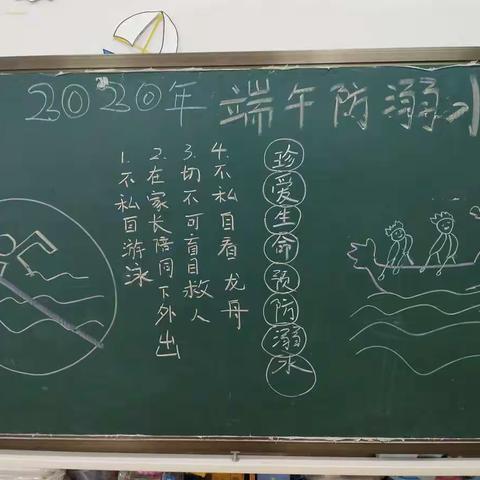 2020年 端午防溺水
1.不私自游泳
2.在家长陪同下外出
3.切不可盲目救人
4.不私自看龙舟
珍爱生命预防溺水